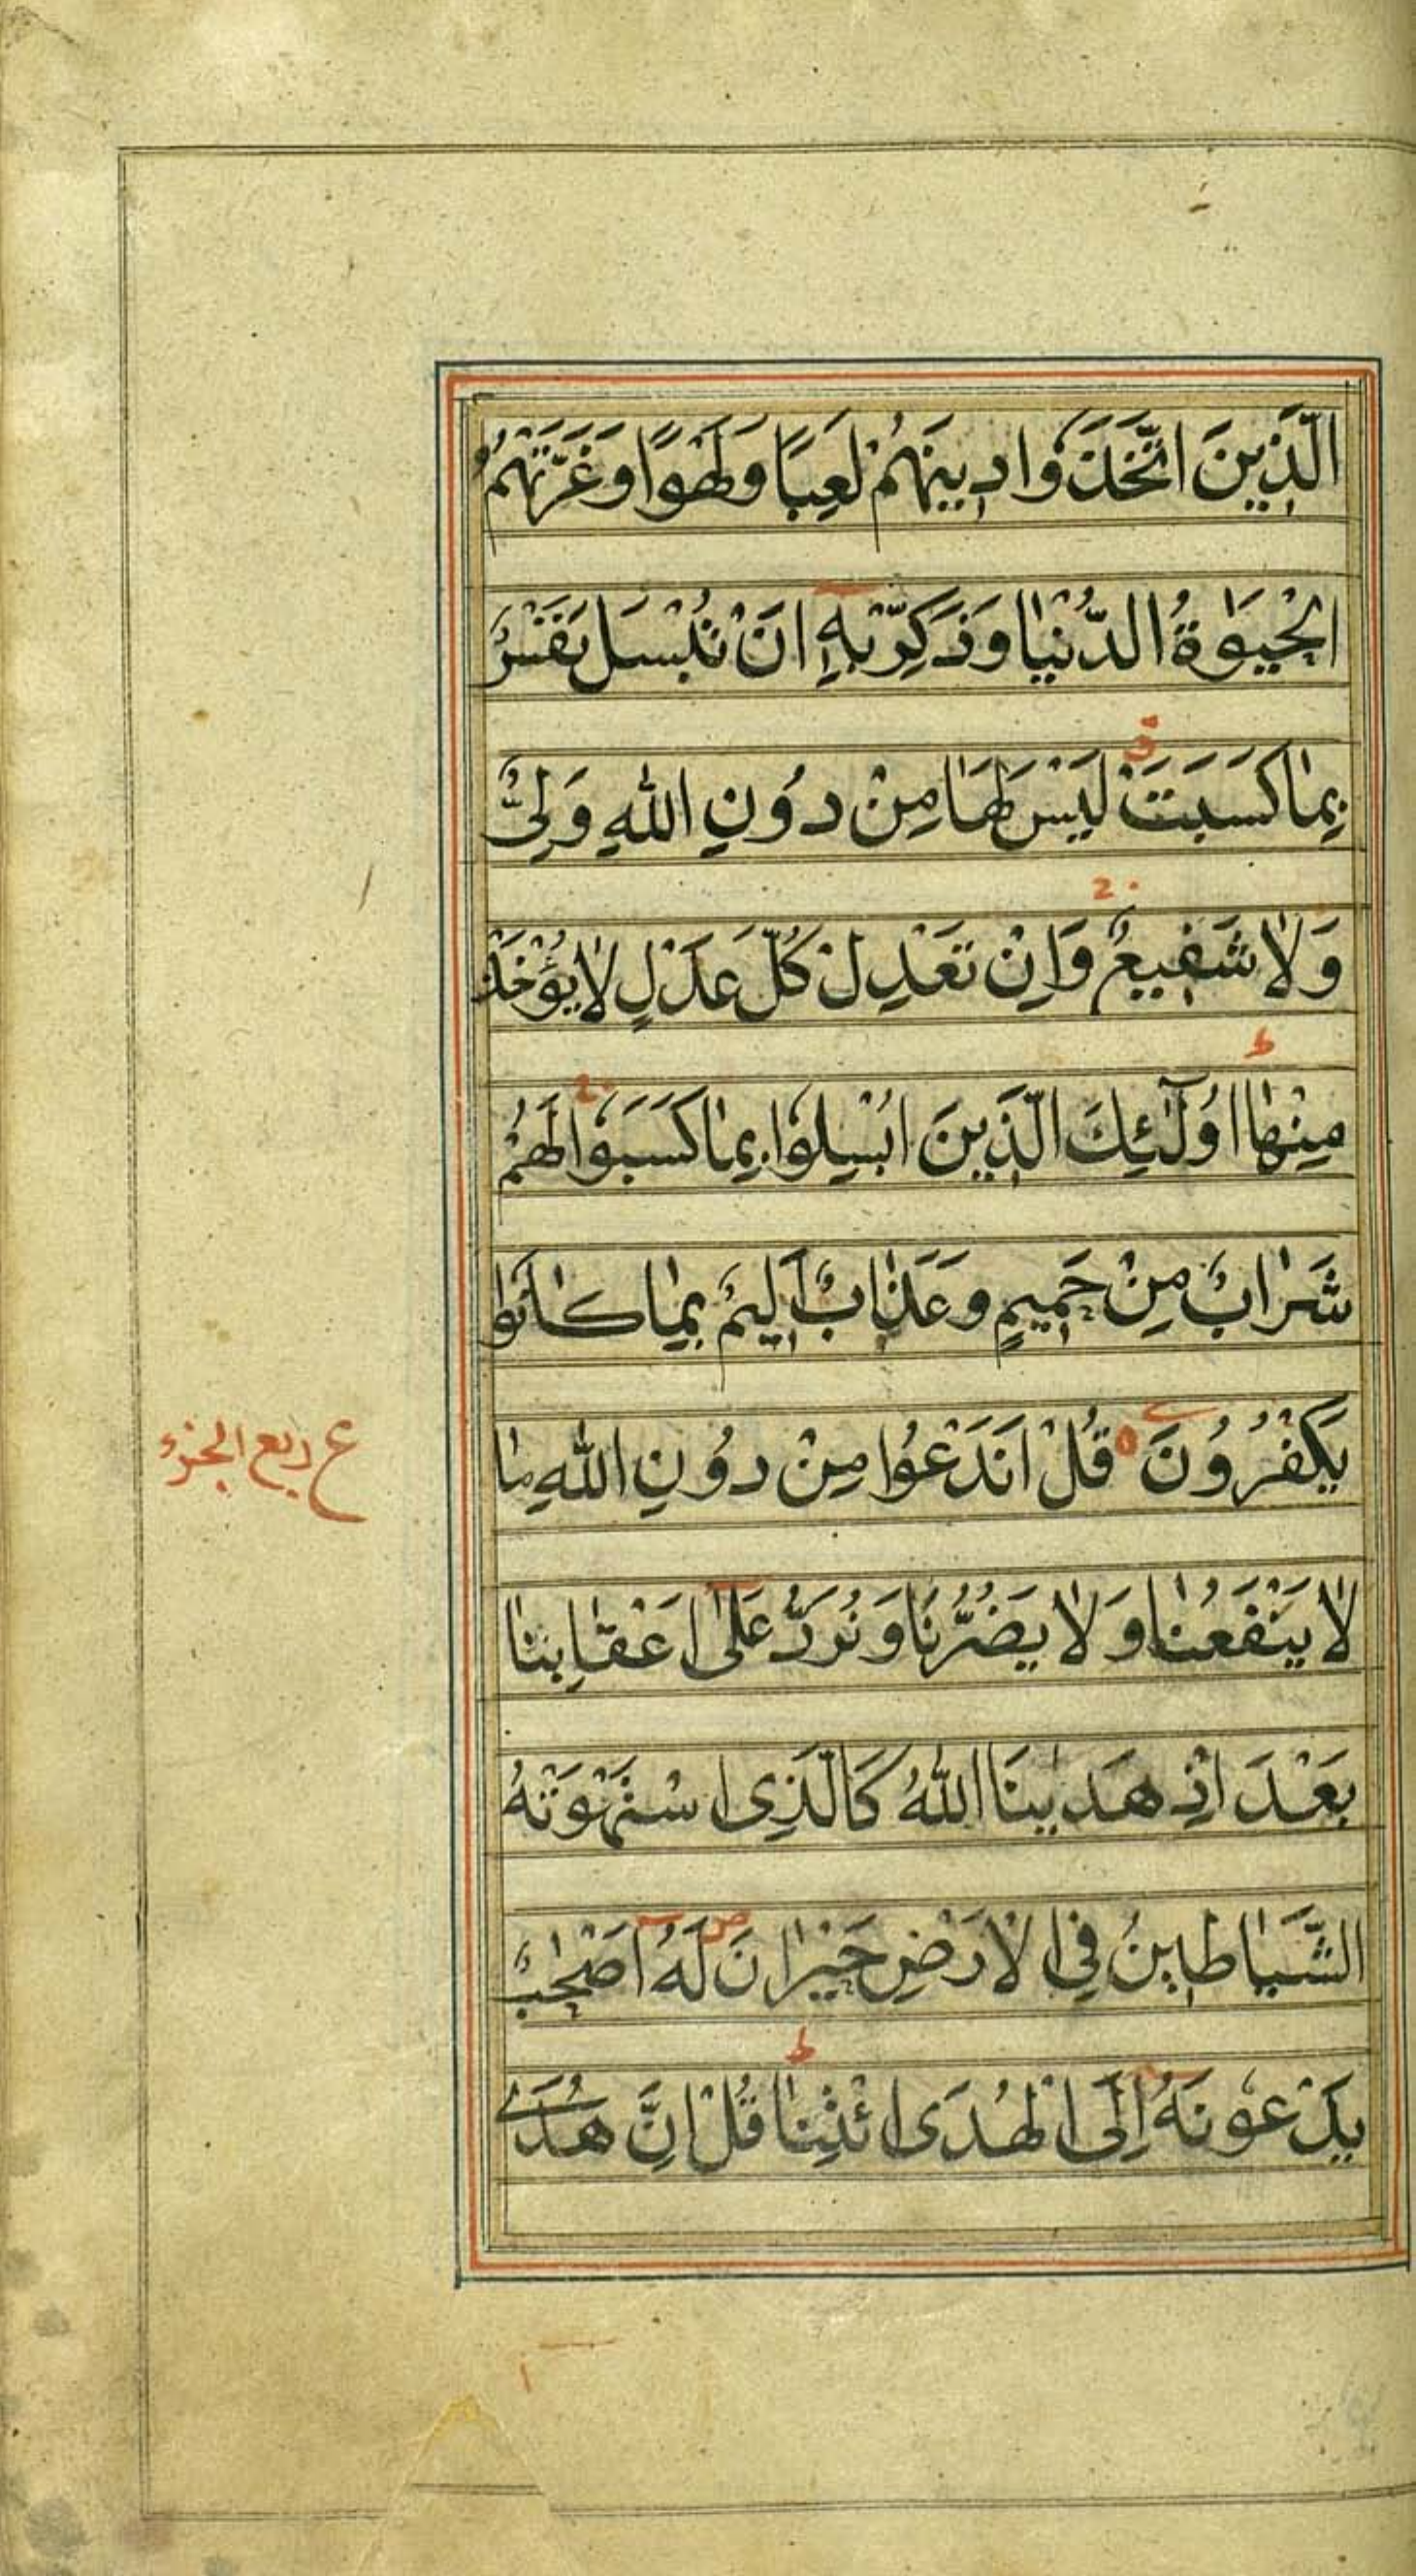 الَّذِينَ اتَّخَذُوا دِينَهُمْ لَعِبًا وَلَهْوًا وَغَرَّتْهُمُ
الْحَيَوٰةُ الدُّنْيَا وَذَكِّرْ بِهِ اَنْ تُبْسَلَ نَفْسٌ
بِمَا كَسَبَتْ لَيْسَ لَهَا مِنْ دُونِ اللّٰهِ وَلِيٌّ
وَلَا شَفِيعٌ وَاِنْ تَعْدِلْ كُلَّ عَدْلٍ لَا يُؤْخَذْ
مِنْهَا اُولٰٓئِكَ الَّذِينَ اُبْسِلُوا بِمَا كَسَبُوا لَهُمْ
شَرَابٌ مِنْ حَمِيمٍ وَعَذَابٌ اَلِيمٌ بِمَا كَانُوا
يَكْفُرُونَ قُلْ اَنَدْعُوا مِنْ دُونِ اللّٰهِ مَا
ع ربع الجزء
لَا يَنْفَعُنَا وَلَا يَضُرُّنَا وَنُرَدُّ عَلٰى اَعْقَابِنَا
بَعْدَ اِذْ هَدٰينَا اللّٰهُ كَالَّذِى اسْتَهْوَتْهُ
الشَّيَاطِينُ فِى الْاَرْضِ حَيْرَانَ لَهُ اَصْحٰبٌ
يَدْعُونَهُ اِلَى الْهُدَى ائْتِنَا قُلْ اِنَّ هُدَى